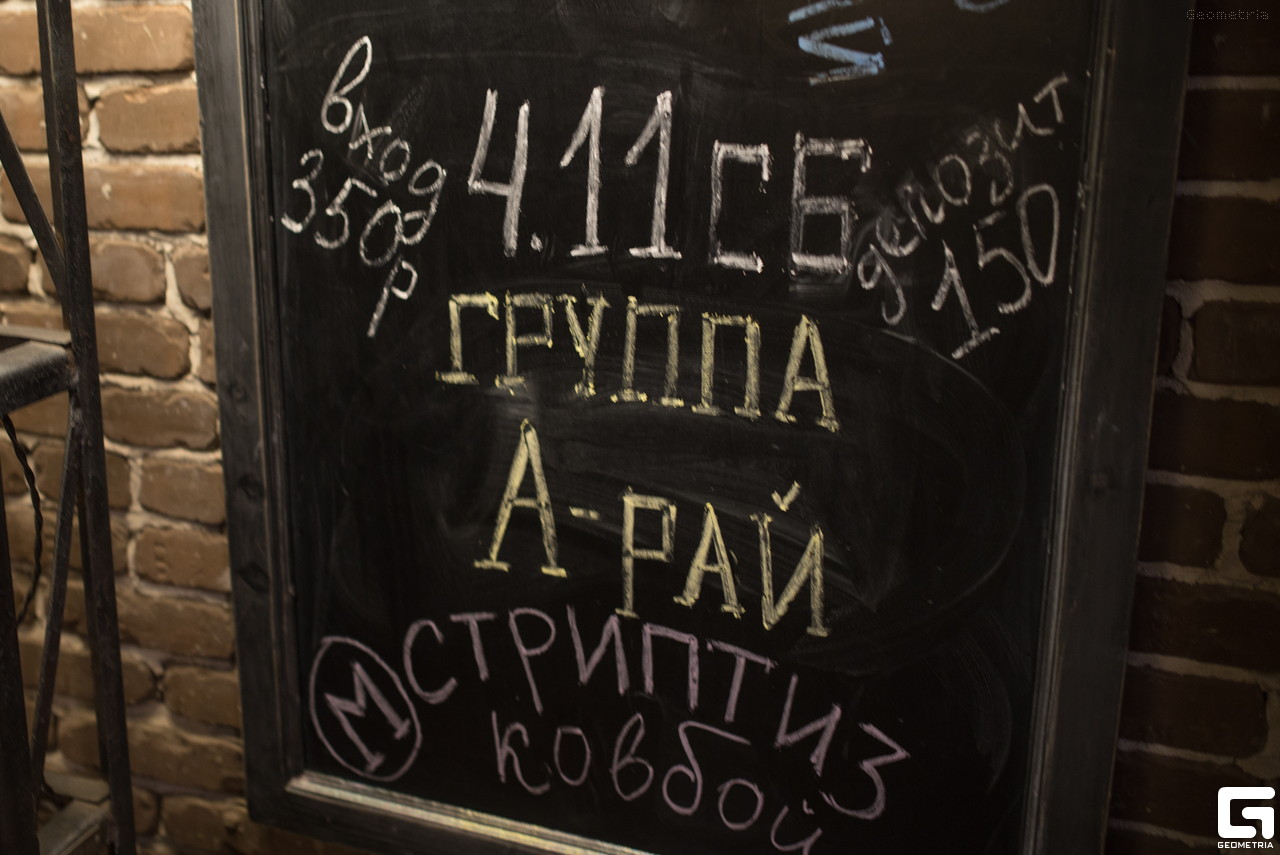 Geometria
вход
350
р
4.11 СБ
депозит
150
ГРУППА
А-РАЙ
М СТРИПТИЗ
ковбой
GEOMETRIA